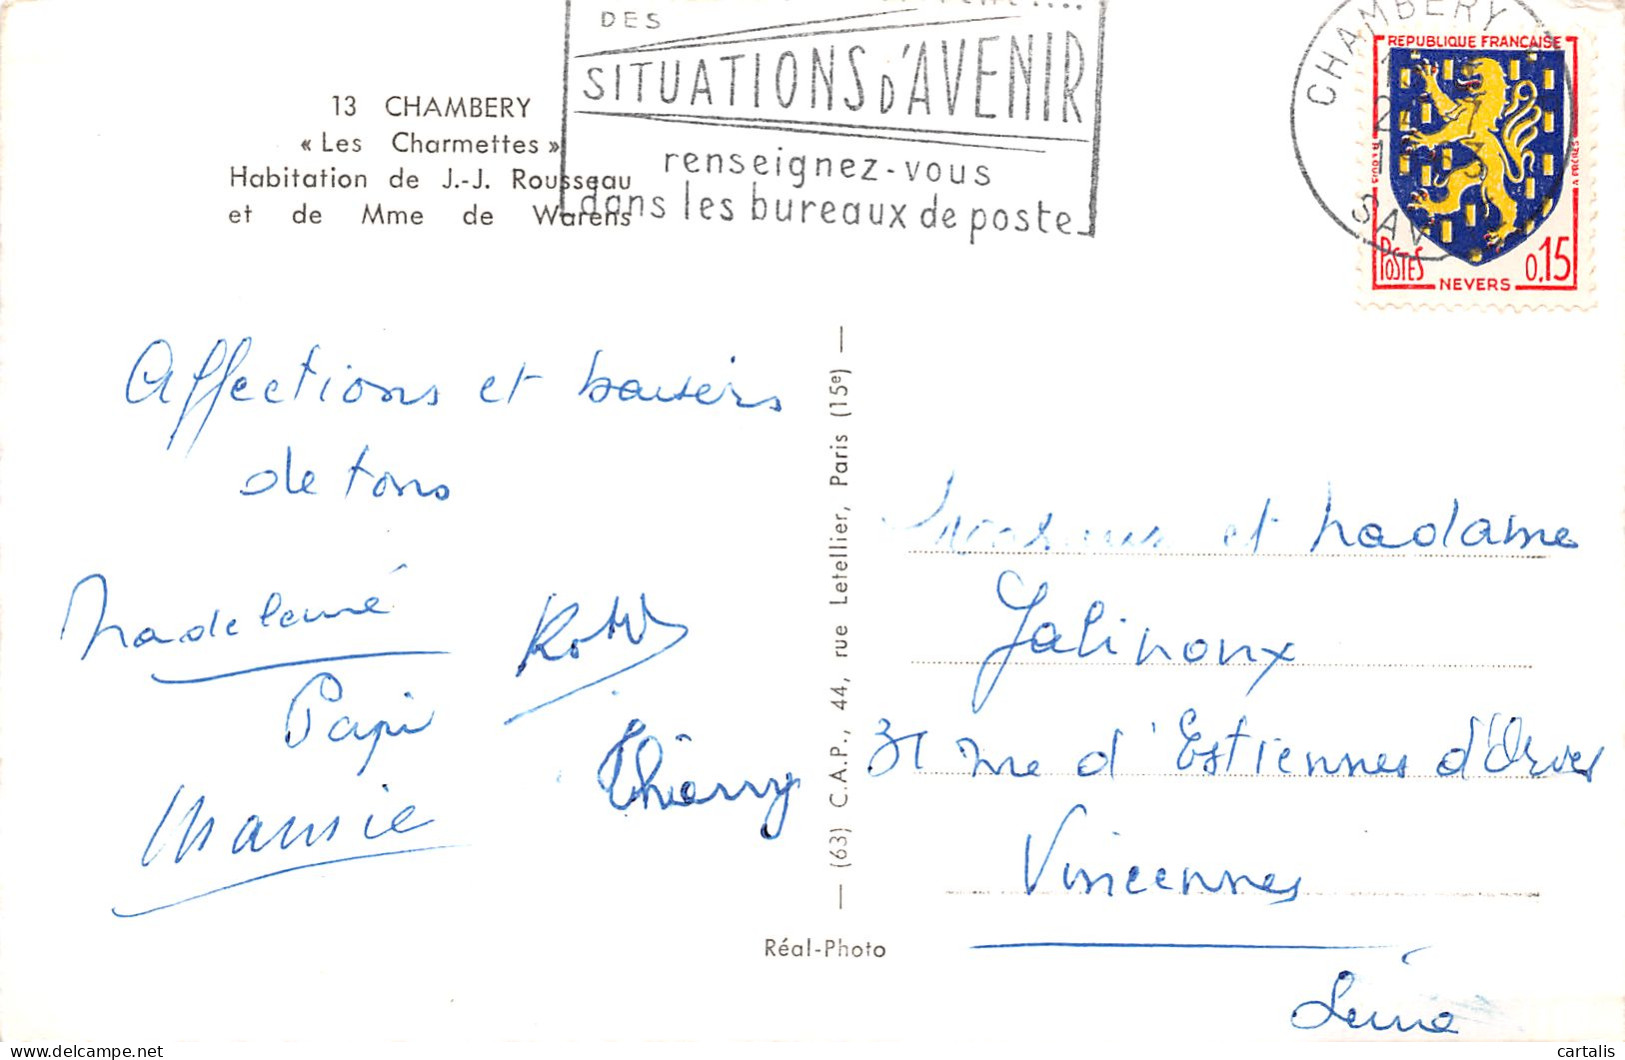 DES
SITUATIONS D'AVENIR
renseignez-vous
dans les bureaux de poste
CHAMBERY
SAV
REPUBLIQUE FRANÇAISE
POSTES
0,15
NEVERS
13 CHAMBERY
« Les Charmettes »
Habitation de J.-J. Rousseau
et de Mme de Warens
Affections et baisers
de tous
Madeleine
Papi
Mamie
Thierry
(63) C.A.P., 44, rue Letellier, Paris (15e)
Réal-Photo
et Madame
Jalinoux
31 rue d'Estiennes d'Orves
Vincennes
Seine
cartalis